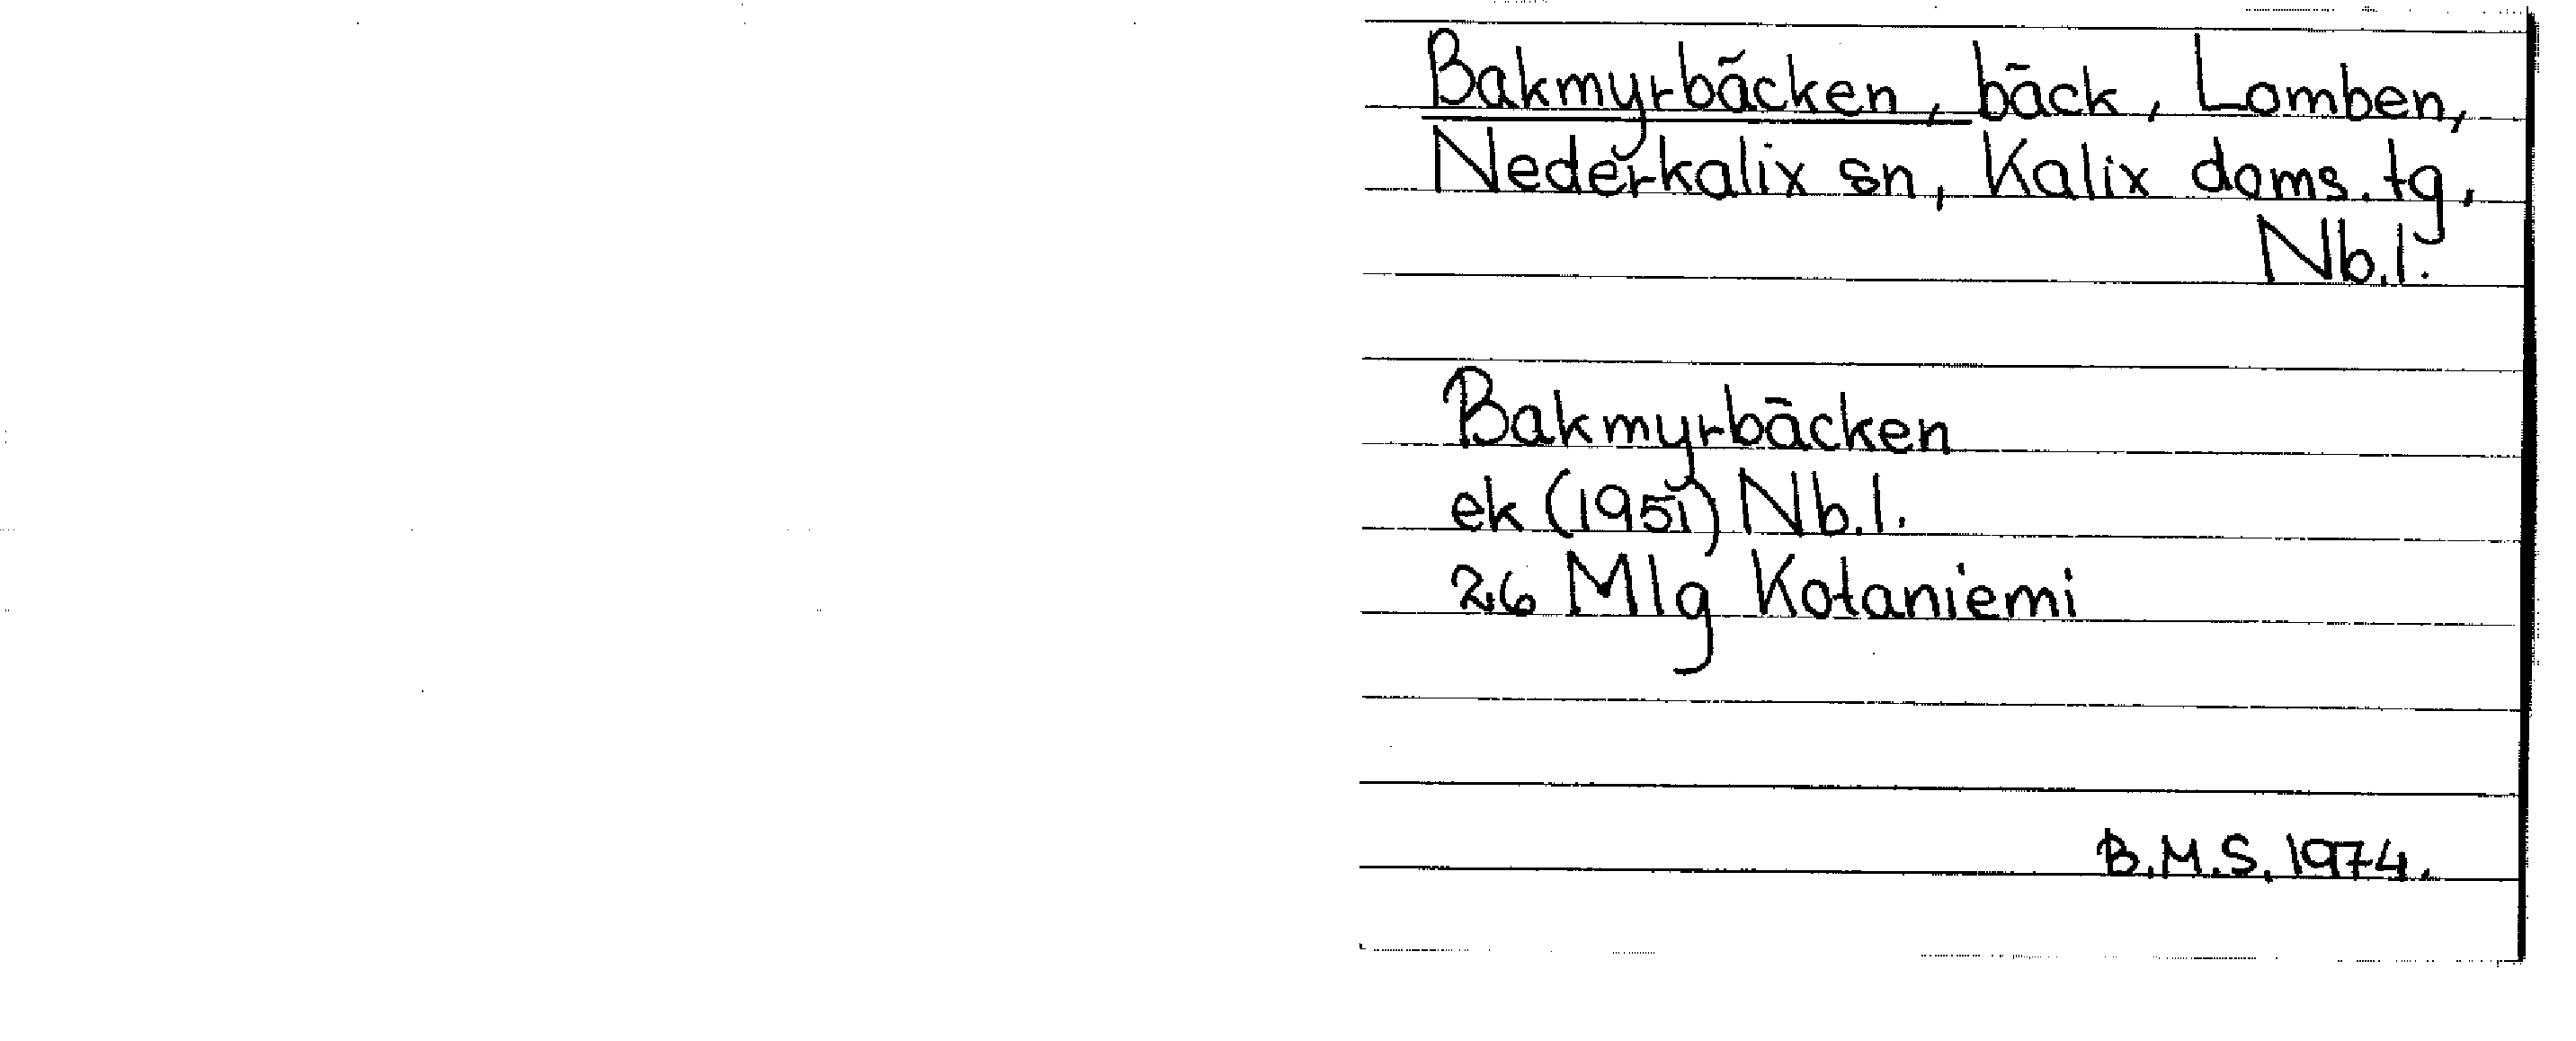 Bakmyrbäcken, bäck, Lomben,
Nederkalix sn, Kalix doms.tg,
Nb.l.
Bakmyrbäcken
ek (1951) Nb.l.
26 Mlg Kotaniemi
B.M.S. 1974.